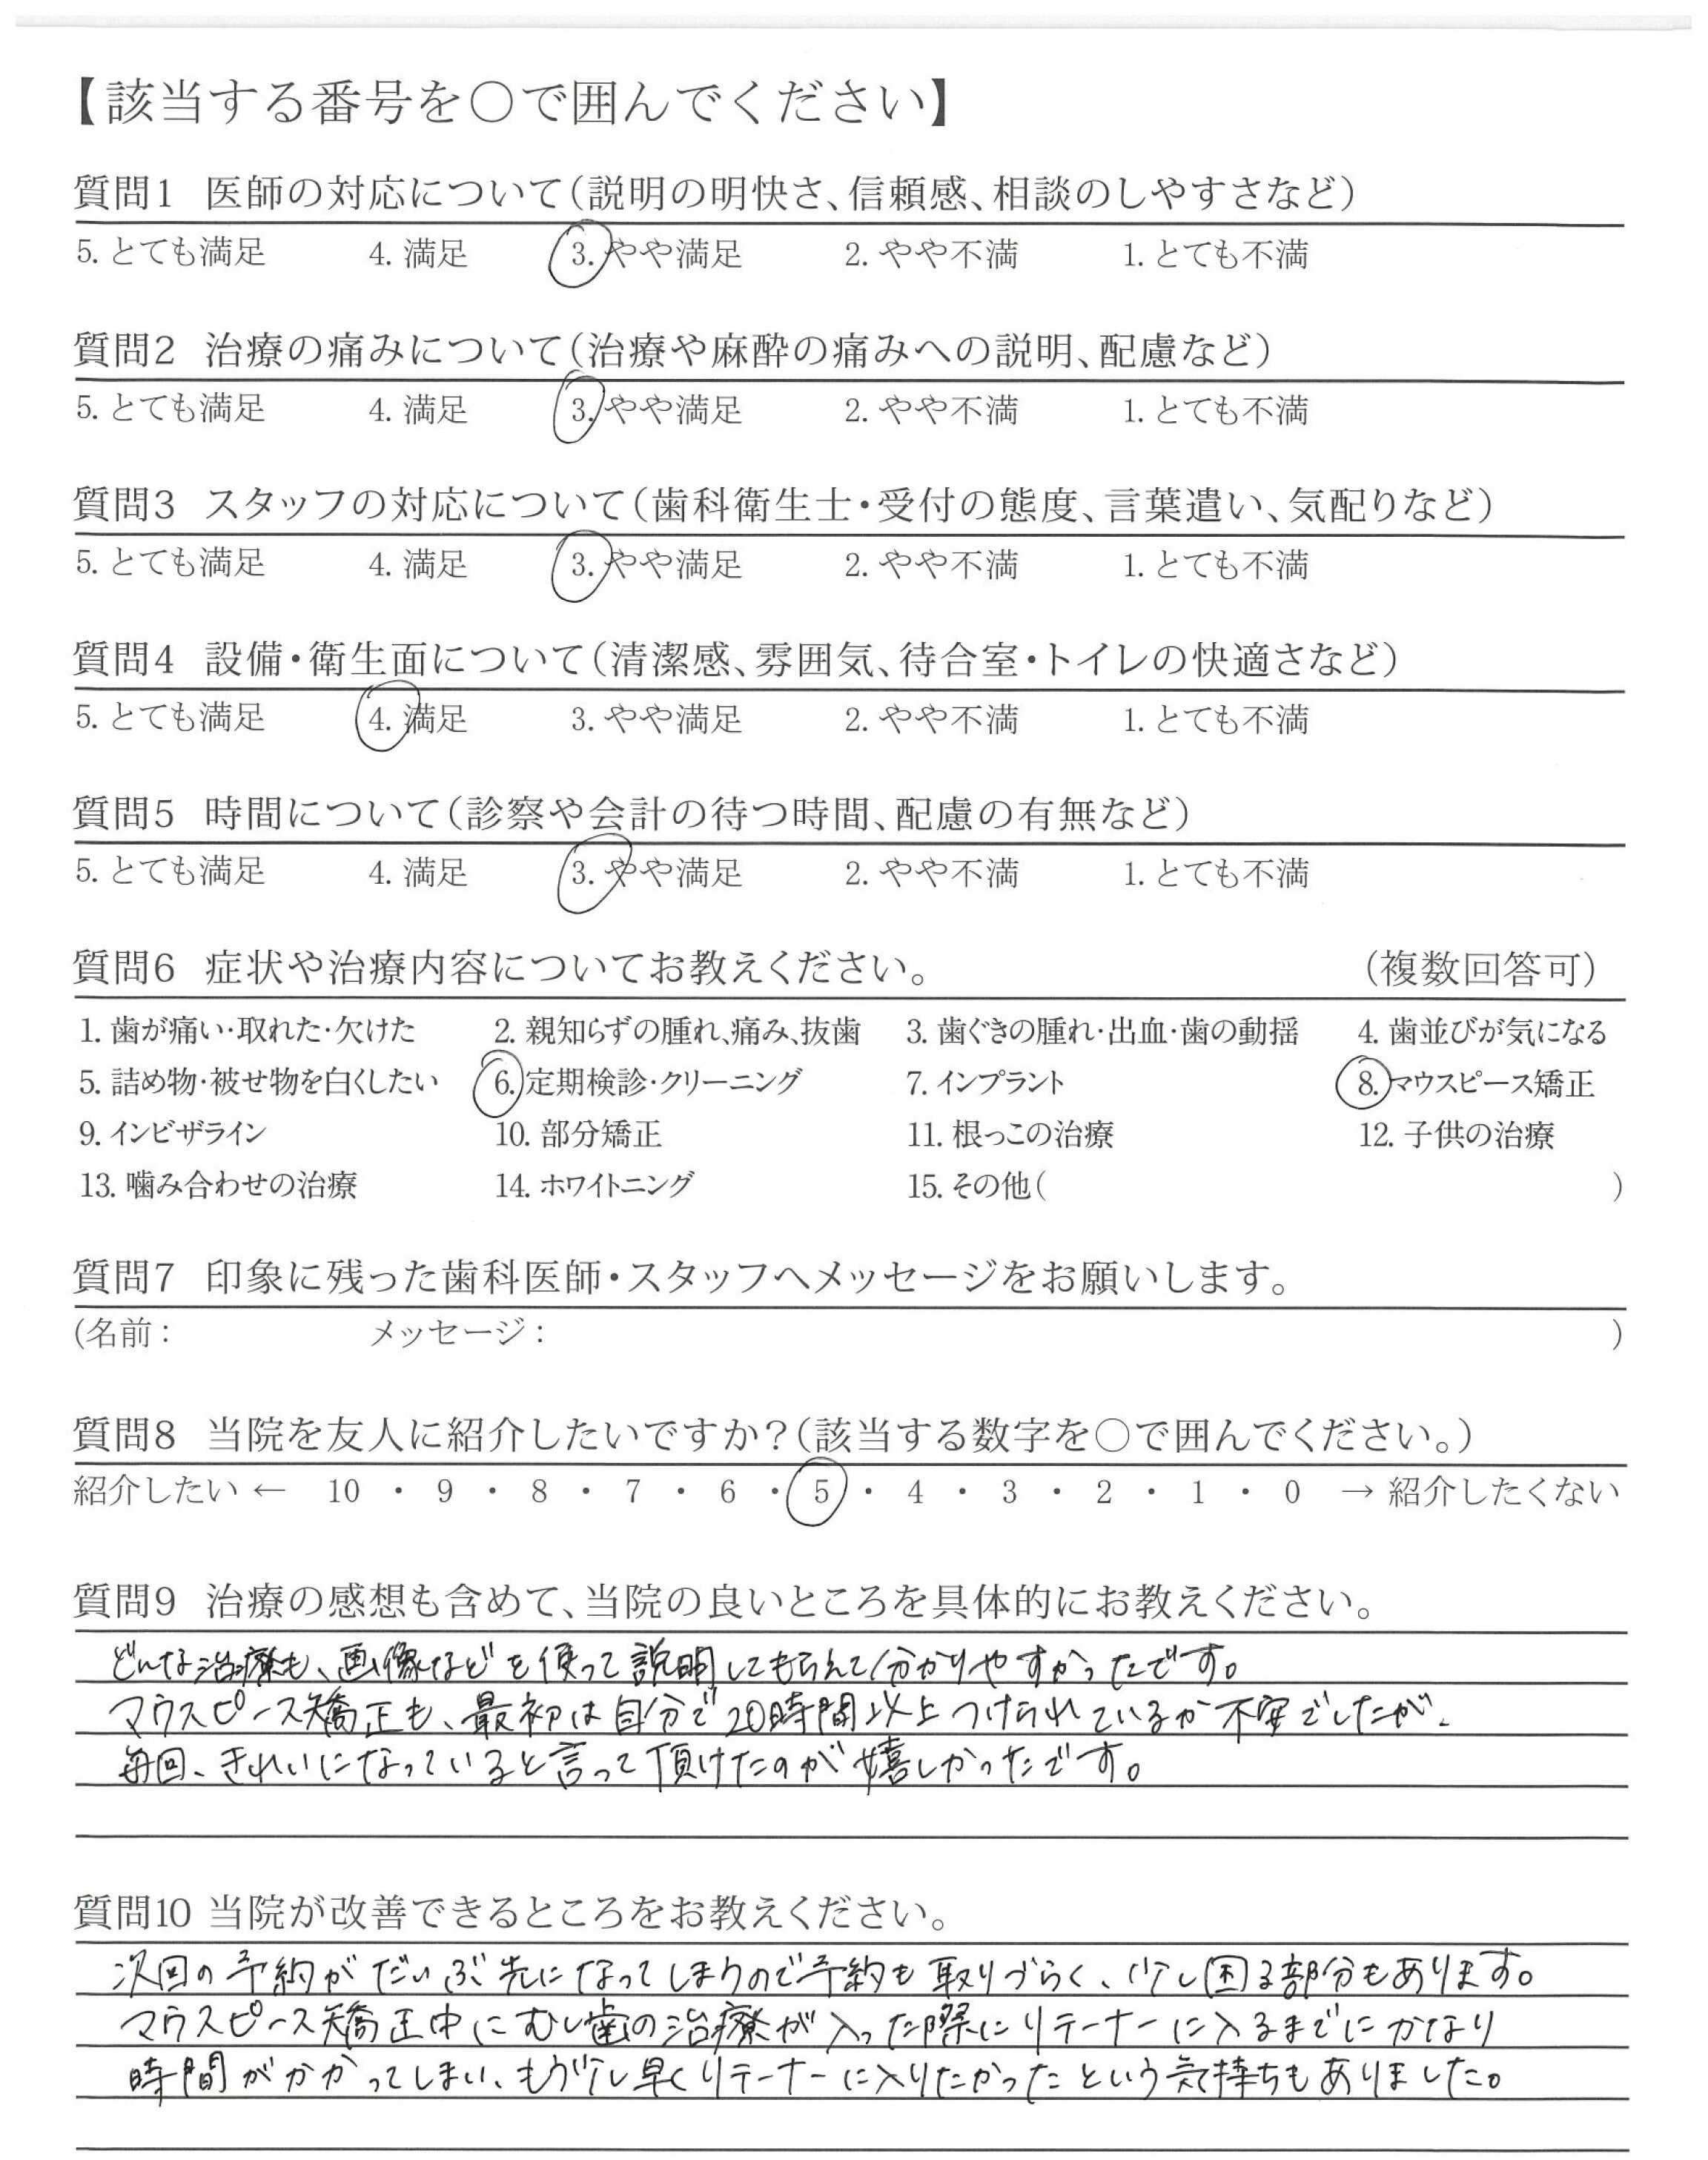 【該当する番号を○で囲んでください】
質問1 医師の対応について（説明の明快さ、信頼感、相談のしやすさなど）
5. とても満足 4. 満足 3. やや満足 2. やや不満 1. とても不満
質問2 治療の痛みについて（治療や麻酔の痛みへの説明、配慮など）
5. とても満足 4. 満足 3. やや満足 2. やや不満 1. とても不満
質問3 スタッフの対応について（歯科衛生士・受付の態度、言葉遣い、気配りなど）
5. とても満足 4. 満足 3. やや満足 2. やや不満 1. とても不満
質問4 設備・衛生面について（清潔感、雰囲気、待合室・トイレの快適さなど）
5. とても満足 4. 満足 3. やや満足 2. やや不満 1. とても不満
質問5 時間について（診察や会計の待つ時間、配慮の有無など）
5. とても満足 4. 満足 3. やや満足 2. やや不満 1. とても不満
質問6 症状や治療内容についてお教えください。 （複数回答可）
1. 歯が痛い・取れた・欠けた 2. 親知らずの腫れ、痛み、抜歯 3. 歯ぐきの腫れ・出血・歯の動揺 4. 歯並びが気になる
5. 詰め物・被せ物を白くしたい 6. 定期検診・クリーニング 7. インプラント 8. マウスピース矯正
9. インビザライン 10. 部分矯正 11. 根っこの治療 12. 子供の治療
13. 噛み合わせの治療 14. ホワイトニング 15. その他（ ）
質問7 印象に残った歯科医師・スタッフへメッセージをお願いします。
（名前： メッセージ： ）
質問8 当院を友人に紹介したいですか？（該当する数字を○で囲んでください。）
紹介したい ← 10 ・ 9 ・ 8 ・ 7 ・ 6 ・ 5 ・ 4 ・ 3 ・ 2 ・ 1 ・ 0 → 紹介したくない
質問9 治療の感想も含めて、当院の良いところを具体的にお教えください。
どんな治療も、画像などを使って説明してもらえて分かりやすかったです。
マウスピース矯正も、最初は自分で20時間以上つけられているか不安でしたが、
毎回、きれいになっていると言って頂けたのが嬉しかったです。
質問10 当院が改善できるところをお教えください。
次回の予約がだいぶ先になってしまうので予約も取りづらく、少し困る部分もあります。
マウスピース矯正中にむし歯の治療が入った際にリテーナーに入るまでにかなり
時間がかかってしまい、もう少し早くリテーナーに入りたかったという気持ちもありました。